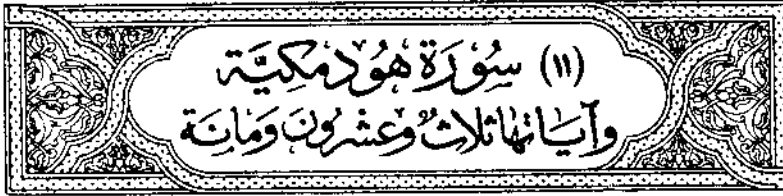 (١١) سُوْرَةُ هُوْدٍ مَكِيَّة
وَآيَاتُهَا ثَلَاثٌ وَعِشْرُونَ وَمَائَة